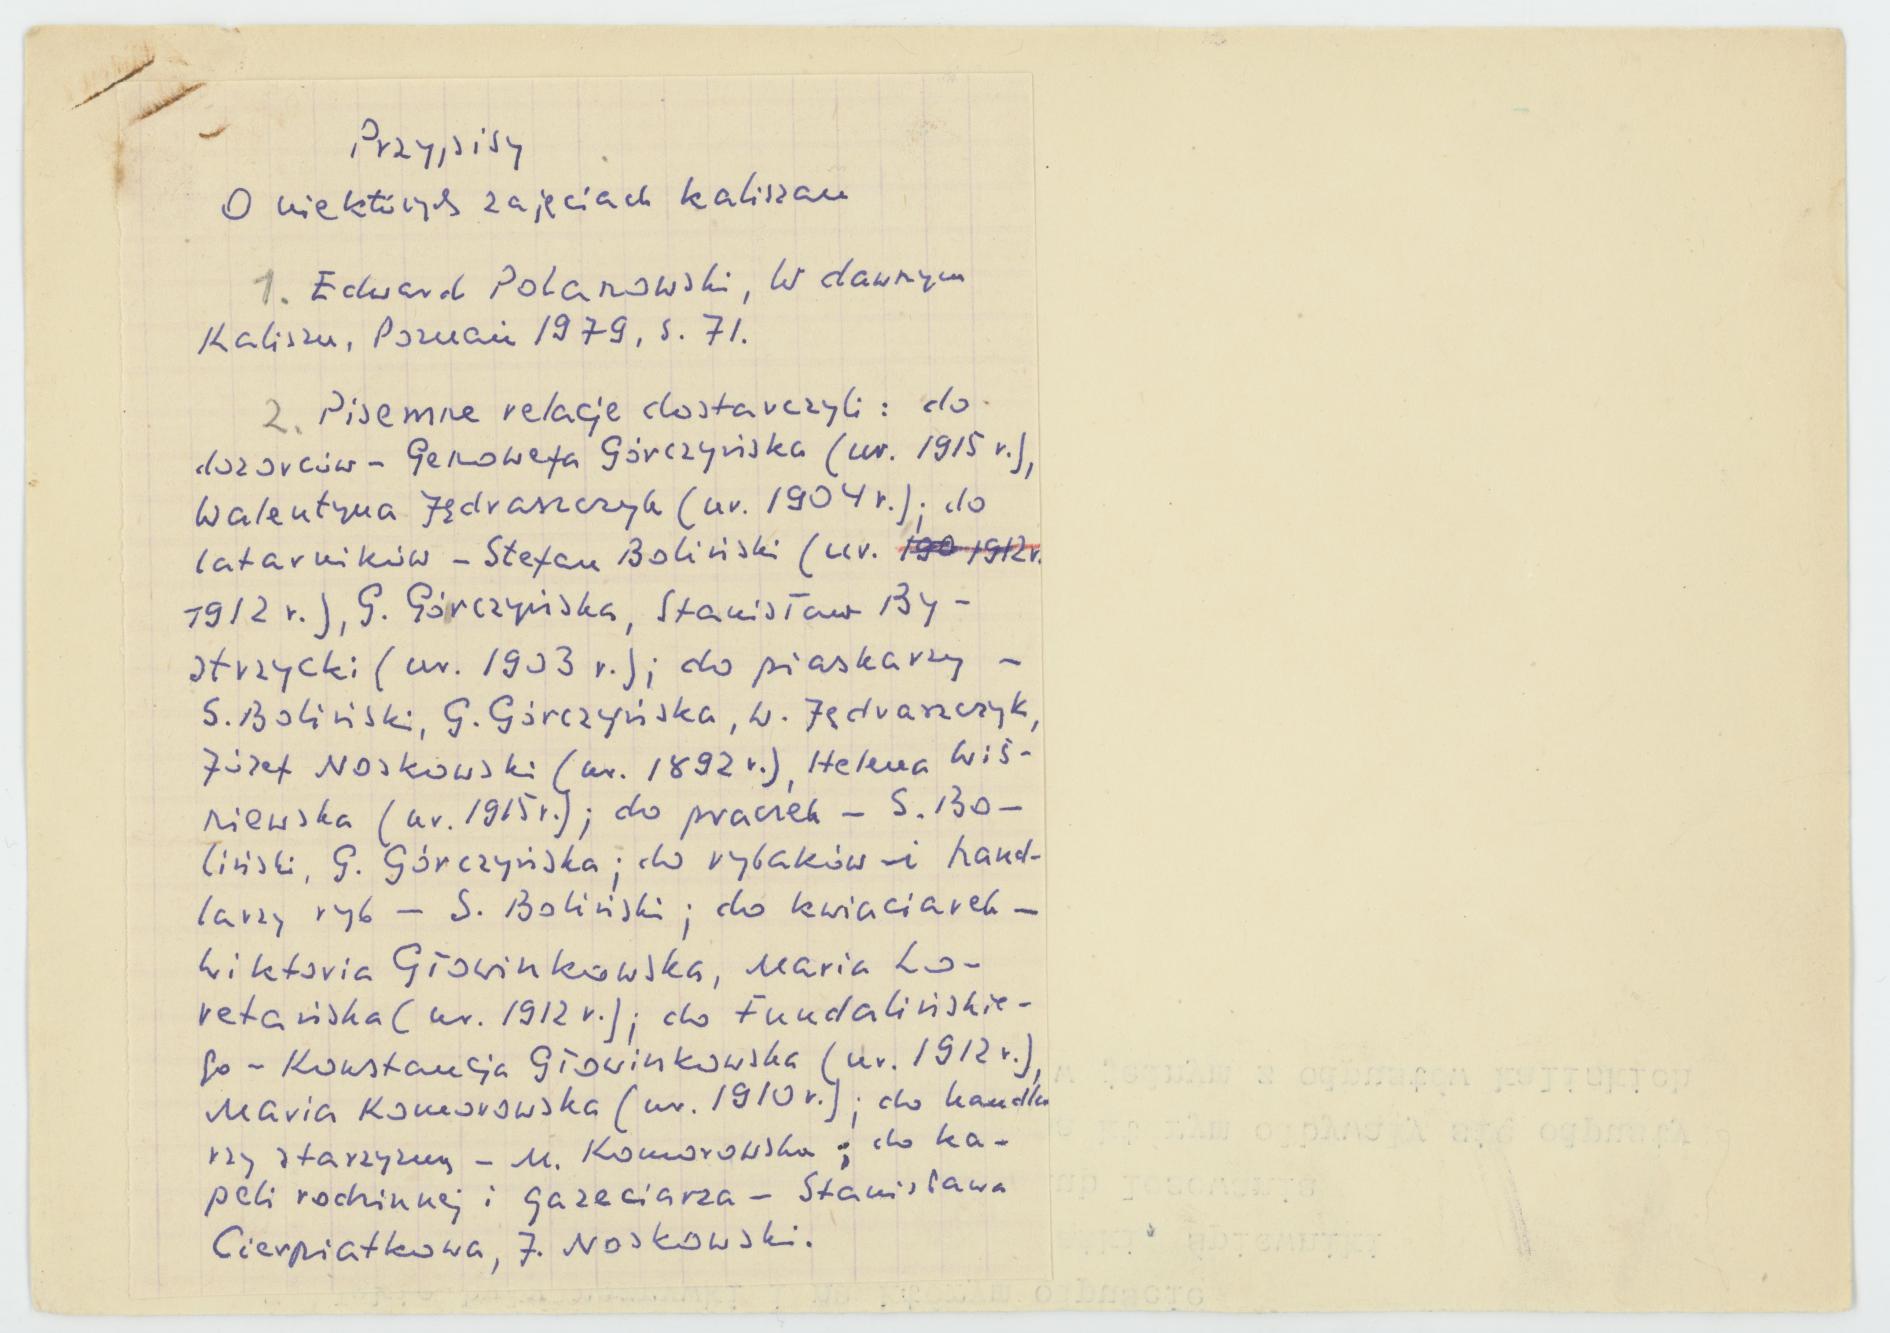 Przypisy
O niektórych zajęciach kaliszan
1. Edward Polanowski, W dawnym
Kaliszu, Poznań 1979, s. 71.
2. Pisemne relacje dostarczyli: do
dozorców - Genowefa Górczyńska (ur. 1915 r.),
Walentyna Jędraszczyk (ur. 1904 r.); do
latarników - Stefan Boliński (ur. 190 1912r.
1912 r.), G. Górczyńska, Stanisław By-
strzycki (ur. 1903 r.); do piaskarzy -
S. Boliński, G. Górczyńska, W. Jędraszczyk,
Józef Noskowski (ur. 1892 r.), Helena Wiś-
niewska (ur. 1915 r.); do praczek - S. Bo-
liński, G. Górczyńska; do rybaków i hand-
larzy ryb - S. Boliński; do kwiaciarek -
Wiktoria Głowinkowska, Maria Lo-
retańska (ur. 1912 r.); do Fundalińskie-
go - Konstancja Głowinkowska (ur. 1912 r.),
Maria Komorowska (ur. 1910 r.); do handla
rzy starzyzny - M. Komorowska; do ka-
peli rodzinnej i gazeciarza - Stanisława
Cierpiatkowa, J. Noskowski.
w jednym z odpustów kaliskich
odbywały się odpusty
lub losowania
śpiewniki
i na którym odpuście